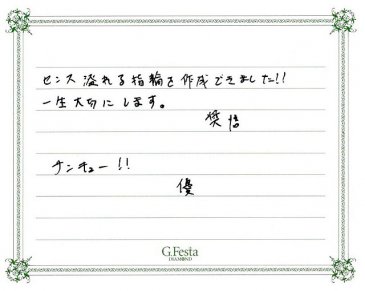 センス溢れる指輪を作成できました!!
一生大切にします。
奨悟
サンキュー!!
優
G.Festa
DIAMOND